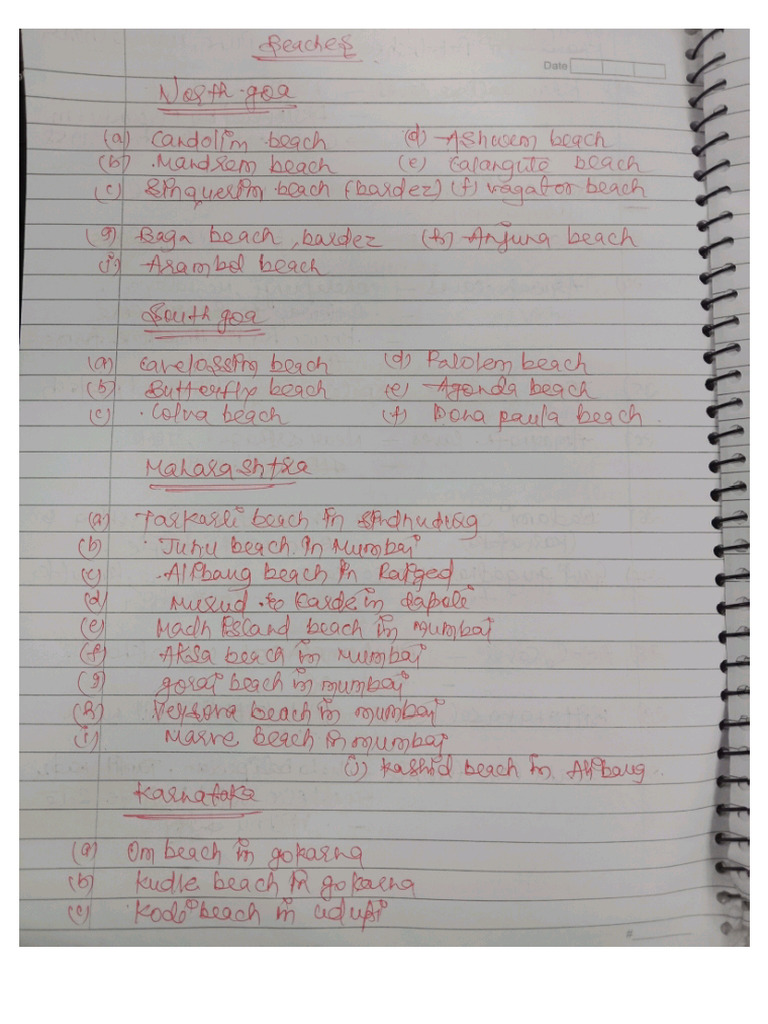 Beaches
Date
North-goa
(a) Candolim beach (d) Ashwem beach
(b) Mandrem beach (e) Calanguto beach
(c) Sinquerim beach (bardez) (f) vagator beach
(g) Baga beach, bardez (h) Anjuna beach
(i) Arambol beach
South goa
(a) Cavelossim beach (d) Palolem beach
(b) Butterfly beach (e) Agonda beach
(c) Colva beach (f) Dona paula beach.
Maharashtra
(a) Tarkarli beach in Sindhudurg
(b) Juhu beach in Mumbai
(c) Alibaug beach in Raiged
(d) Murud to Karde in dapoli
(e) Madh Island beach in mumbai
(f) Aksa beach in Mumbai
(g) gorai beach in mumbai
(h) Versova beach in mumbai
(i) Marve beach in mumbai
(j) Kashid beach in Alibaug.
Karnataka
(a) Om beach in gokarna
(b) Kudle beach in gokarna
(c) Kodi beach in udupi